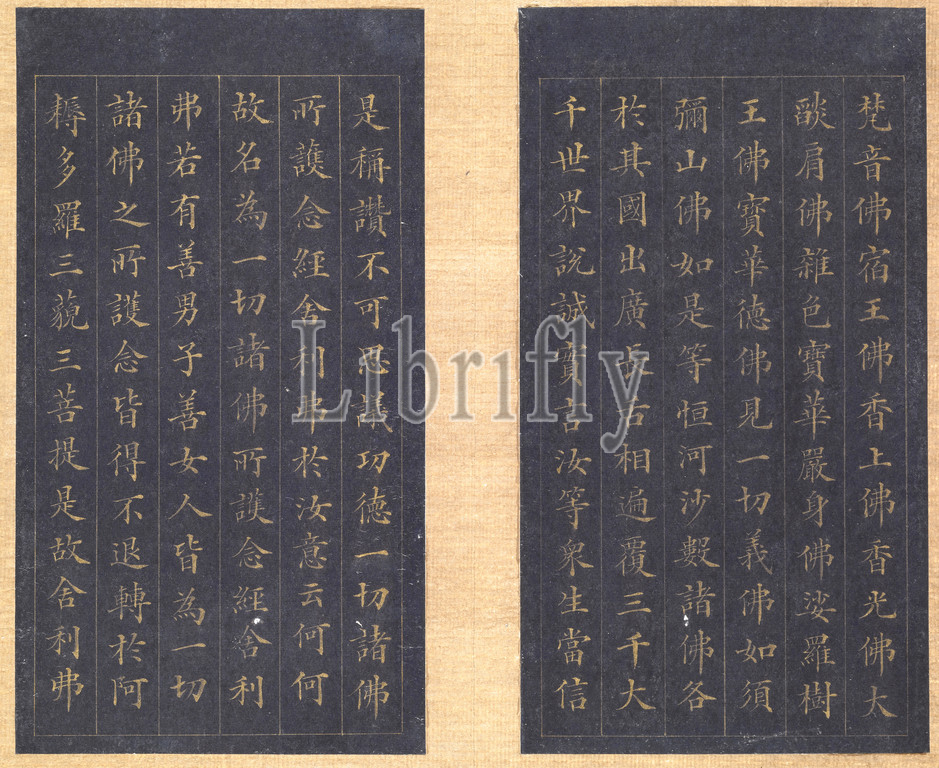 梵音佛宿王佛香上佛香光佛大
燄肩佛雜色寶華嚴身佛娑羅樹
王佛寶華德佛見一切義佛如須
彌山佛如是等恒河沙數諸佛各
於其國出廣長舌相遍覆三千大
千世界說誠實言汝等衆生當信
是稱讚不可思議功德一切諸佛
所護念經舍利弗於汝意云何何
故名為一切諸佛所護念經舍利
弗若有善男子善女人皆為一切
諸佛之所護念皆得不退轉於阿
耨多羅三藐三菩提是故舍利弗
Librifly